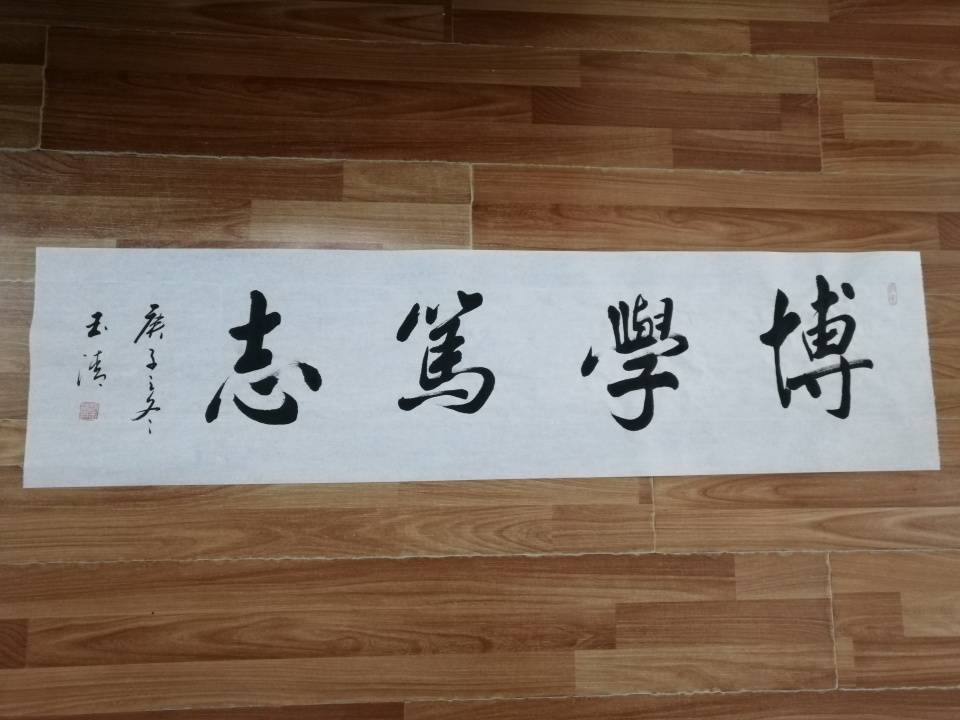 博學篤志
庚子之冬
玉清